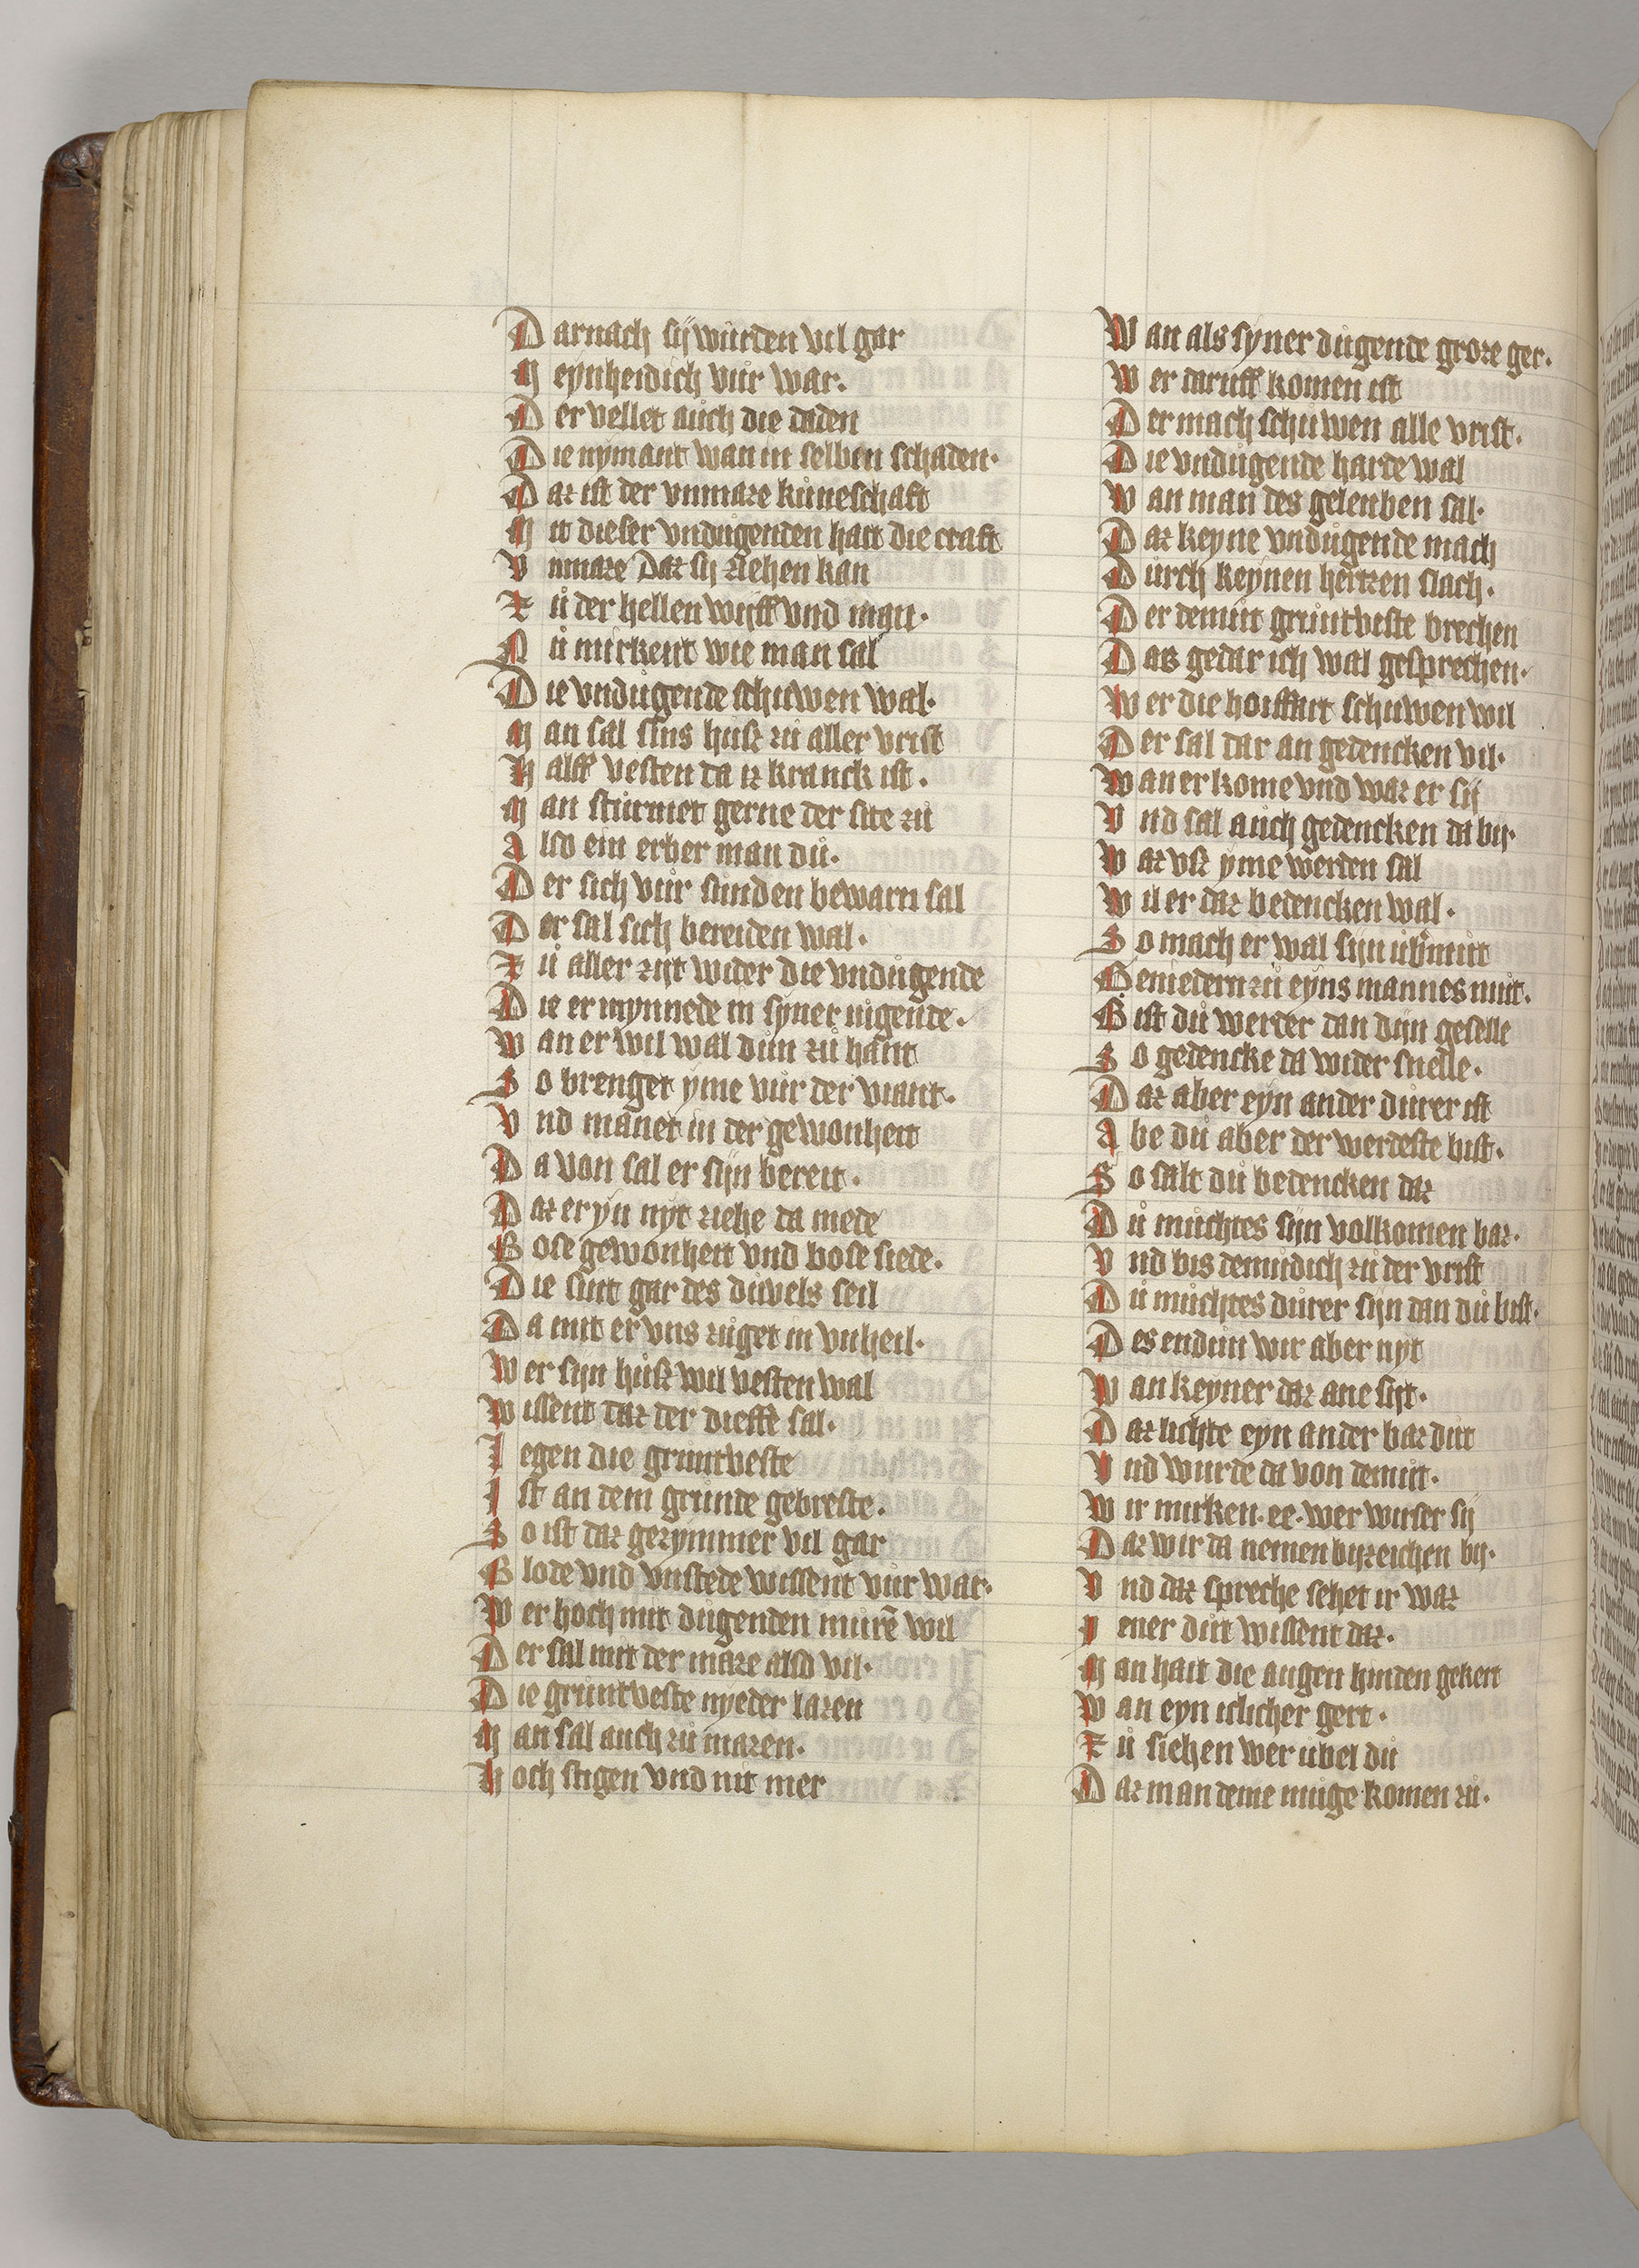 Darnach sij wůrden vil gar
Meynheidich vůr war.
Der vellet aůch die daden
Die nymant wan in selben schaden.
Daz ist der vnmaze kůneschaft
Mit dieser vndůgenden hait die craft
Vnmaze Daz sij ziehen kan
Zů der hellen wijff vnd man.
Nů mirkent wie man sal
Die vndůgende schuwen wal.
Man sal sins huß zů aller vrist
Halff vesten da iz kranck ist.
Man stůrmet gerne der site zů
Also ein erber man dů.
Der sich vůr sunden bewarn sal
Der sal sich bereiden wal.
Zů aller zijt wider die vndůgende
Die er mynnede in syner iugende.
Wan er wil wal důn zů hant
So brenget yme vůr der viant.
Vnd manet in der gewonheit
Da von sal er sijn bereit.
Daz er yn nyt ziehe da mede
Bose gewonheit vnd bose siede.
Die sint gar des důvels seil
Da mit er vns zůget in vnheil.
Wer sijn hůß wil vesten wal
Wissent daz der dieffe sal.
Legen die gruntveste
Ist an dem grůnde gebreste.
So ist daz gezymmer vil gar
Blode vnd vnstede wissent vůr war.
Wer hoch mit dugenden murẽ wil
Der sal mit der maze also vil.
Die gruntveste nyeder lazen
Man sal auch zů mazen.
Hoch stigen vnd nit mer
Wan als syner důgende groze ger.
Wer daruff komen ist
Der mach schuwen alle vrist.
Die vndůgende harde wal
Wan man des geleuben sal.
Daz keyne vndůgende mach
Durch keynen hertzen slach.
Der demůt gruntveste brechen
Das gedar ich wal gesprechen.
Wer die hoiffart schuwen wil
Der sal dar an gedencken vil.
Wan er kome vnd waz er sij
Vnd sal aůch gedencken da bij.
Waz vß yme werden sal
Wil er daz bedencken wal.
So mach er wal sijn ubermůt
Geniedern zů eyns mannes můt.
Bist dů werder dan dijn geselle
So gedencke da wider snelle.
Daz aber eyn ander důrer ist
Abe dů aber der werdeste bist.
So salt dů bedencken daz
Dů můchtes sijn volkomen baz.
Vnd bis demůdich zů der vrist
Dů můchtes důrer sijn dan dů bist.
Des endůn wir aber nyt
Wan keyner daz ane siet.
Daz lichte eyn ander baz důt
Vnd wurde da von demůt.
Wir mirken. ee. wer wirser sij
Daz wir da nemen bijzeichen bij.
Vnd daz spreche sehet ir waz
Jener důt wissent daz.
Man hait die augen hinden gekert
Wan eyn islicher gert.
Zů siehen wer ubel dů
Daz man deme můge komen zů.